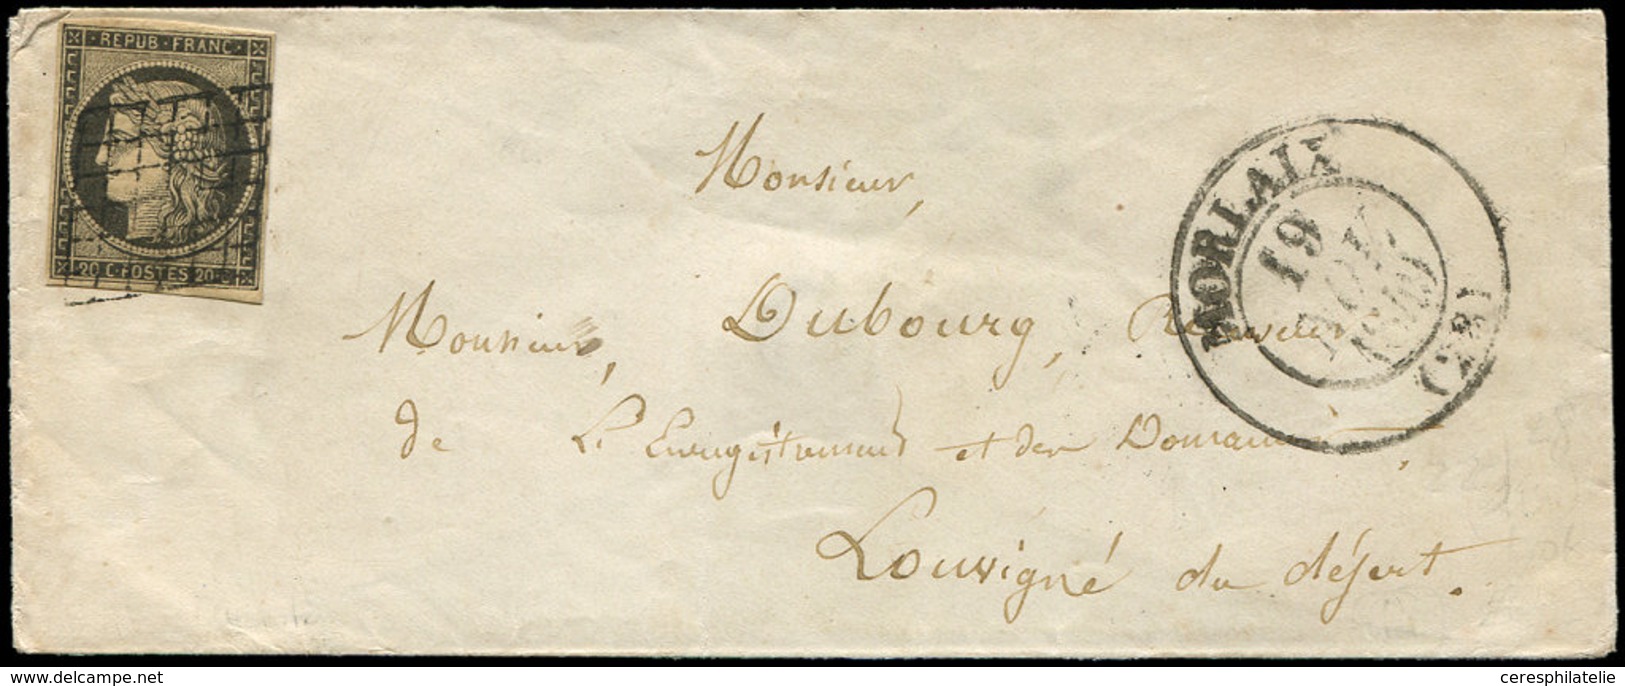 REPUB·FRANC·
20 C·POSTES 20·C
MORLAIX
19
(28)
Monsieur,
Monsieur, Dubourg, Receveur
de l'Enregistrement et des Domaines,
Louvigné du désert.
ceresphilatelie